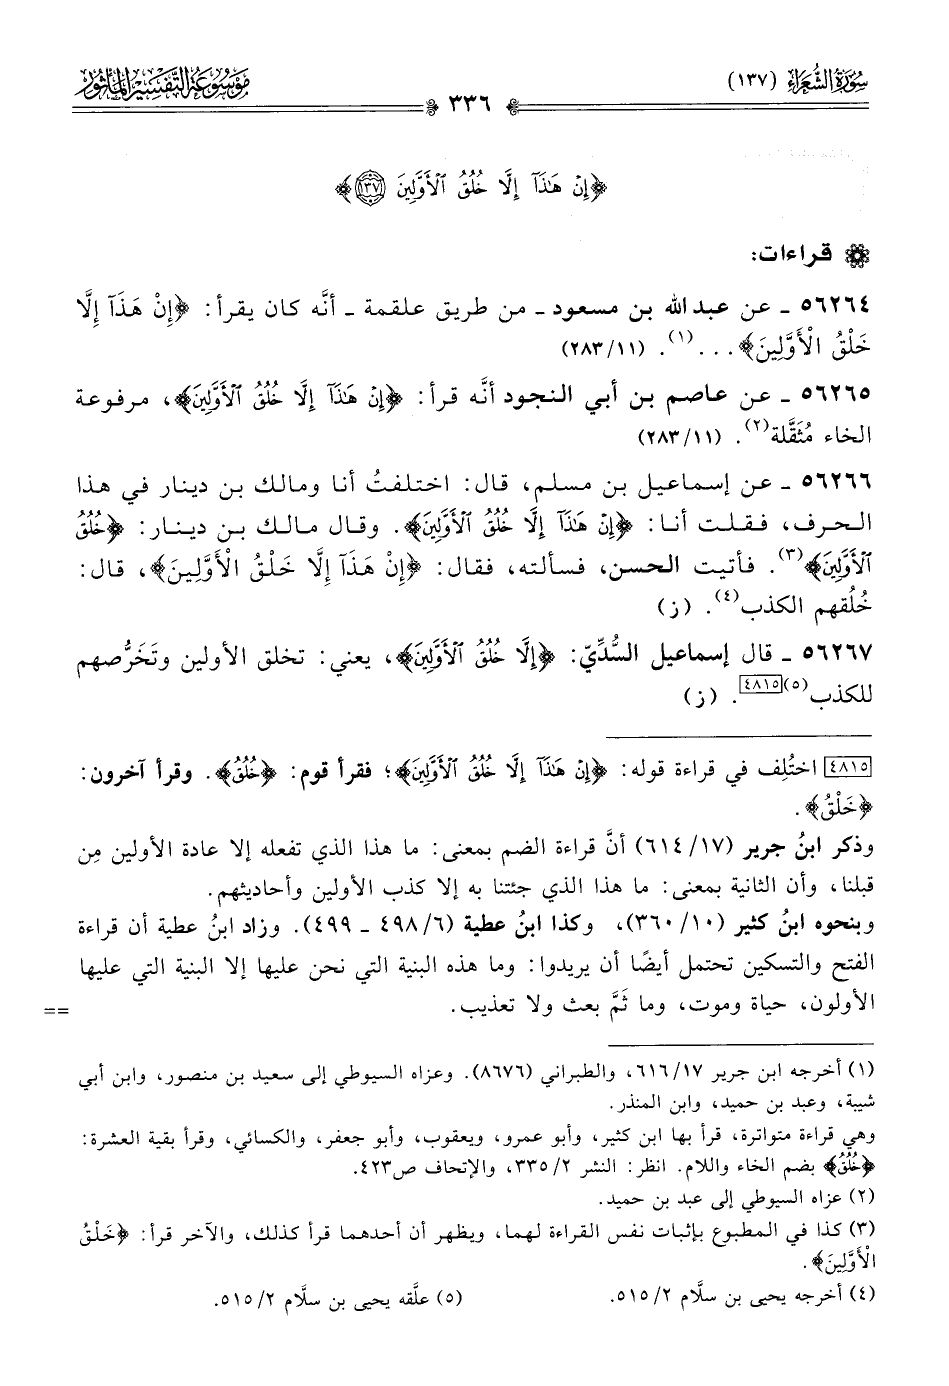 سُورَةُ الشُّعَرَاءِ (١٣٧)
٣٣٦
مَوْسُوعَةُ التَّفْسِيرِ المَأْثُورِ
﴿إِنۡ هَٰذَآ إِلَّا خُلُقُ ٱلۡأَوَّلِينَ ١٣٧﴾
قراءات:
٥٦٢٦٤ ـ عن عبد الله بن مسعود ـ من طريق علقمة ـ أنَّه كان يقرأ: ﴿إِنْ هَذَآ إِلَّا
خَلْقُ الْأَوَّلِينَ﴾...(١). (٢٨٣/١١)
٥٦٢٦٥ ـ عن عاصم بن أبي النجود أنَّه قرأ: ﴿إِنۡ هَٰذَآ إِلَّا خُلُقُ ٱلۡأَوَّلِينَ﴾، مرفوعة
الخاء مُثَقَّلة(٢). (٢٨٣/١١)
٥٦٢٦٦ ـ عن إسماعيل بن مسلم، قال: اختلفتُ أنا ومالك بن دينار في هذا
الحرف، فقلت أنا: ﴿إِنۡ هَٰذَآ إِلَّا خُلُقُ ٱلۡأَوَّلِينَ﴾. وقال مالك بن دينار: ﴿خُلُقُ
ٱلۡأَوَّلِينَ﴾(٣). فأتيت الحسن، فسألته، فقال: ﴿إِنْ هَذَآ إِلَّا خَلْقُ الْأَوَّلِينَ﴾، قال:
خُلُقهم الكذب(٤). (ز)
٥٦٢٦٧ ـ قال إسماعيل السُّدِّيّ: ﴿إِلَّا خُلُقُ ٱلۡأَوَّلِينَ﴾، يعني: تخلق الأولين وتَخَرُّصهم
للكذب(٥)[٤٨١٥]. (ز)
[٤٨١٥] اختُلِف في قراءة قوله: ﴿إِنۡ هَٰذَآ إِلَّا خُلُقُ ٱلۡأَوَّلِينَ﴾؛ فقرأ قوم: ﴿خُلُقُ﴾. وقرأ آخرون:
﴿خَلْقُ﴾.
وذكر ابنُ جرير (٦١٤/١٧) أنَّ قراءة الضم بمعنى: ما هذا الذي تفعله إلا عادة الأولين مِن
قبلنا، وأن الثانية بمعنى: ما هذا الذي جئتنا به إلا كذب الأولين وأحاديثهم.
وبنحوه ابنُ كثير (٣٦٠/١٠)، وكذا ابنُ عطية (٤٩٨/٦ ـ ٤٩٩). وزاد ابنُ عطية أن قراءة
الفتح والتسكين تحتمل أيضًا أن يريدوا: وما هذه البنية التي نحن عليها إلا البنية التي عليها
الأولون، حياة وموت، وما ثَمَّ بعث ولا تعذيب. ==
(١) أخرجه ابن جرير ٦١٦/١٧، والطبراني (٨٦٧٦). وعزاه السيوطي إلى سعيد بن منصور، وابن أبي
شيبة، وعبد بن حميد، وابن المنذر.
وهي قراءة متواترة، قرأ بها ابن كثير، وأبو عمرو، ويعقوب، وأبو جعفر، والكسائي، وقرأ بقية العشرة:
﴿خُلُقُ﴾ بضم الخاء واللام. انظر: النشر ٣٣٥/٢، والإتحاف ص٤٢٣.
(٢) عزاه السيوطي إلى عبد بن حميد.
(٣) كذا في المطبوع بإثبات نفس القراءة لهما، ويظهر أن أحدهما قرأ كذلك، والآخر قرأ: ﴿خَلْقُ
الْأَوَّلِينَ﴾.
(٤) أخرجه يحيى بن سلَّام ٥١٥/٢. (٥) علَّقه يحيى بن سلَّام ٥١٥/٢.